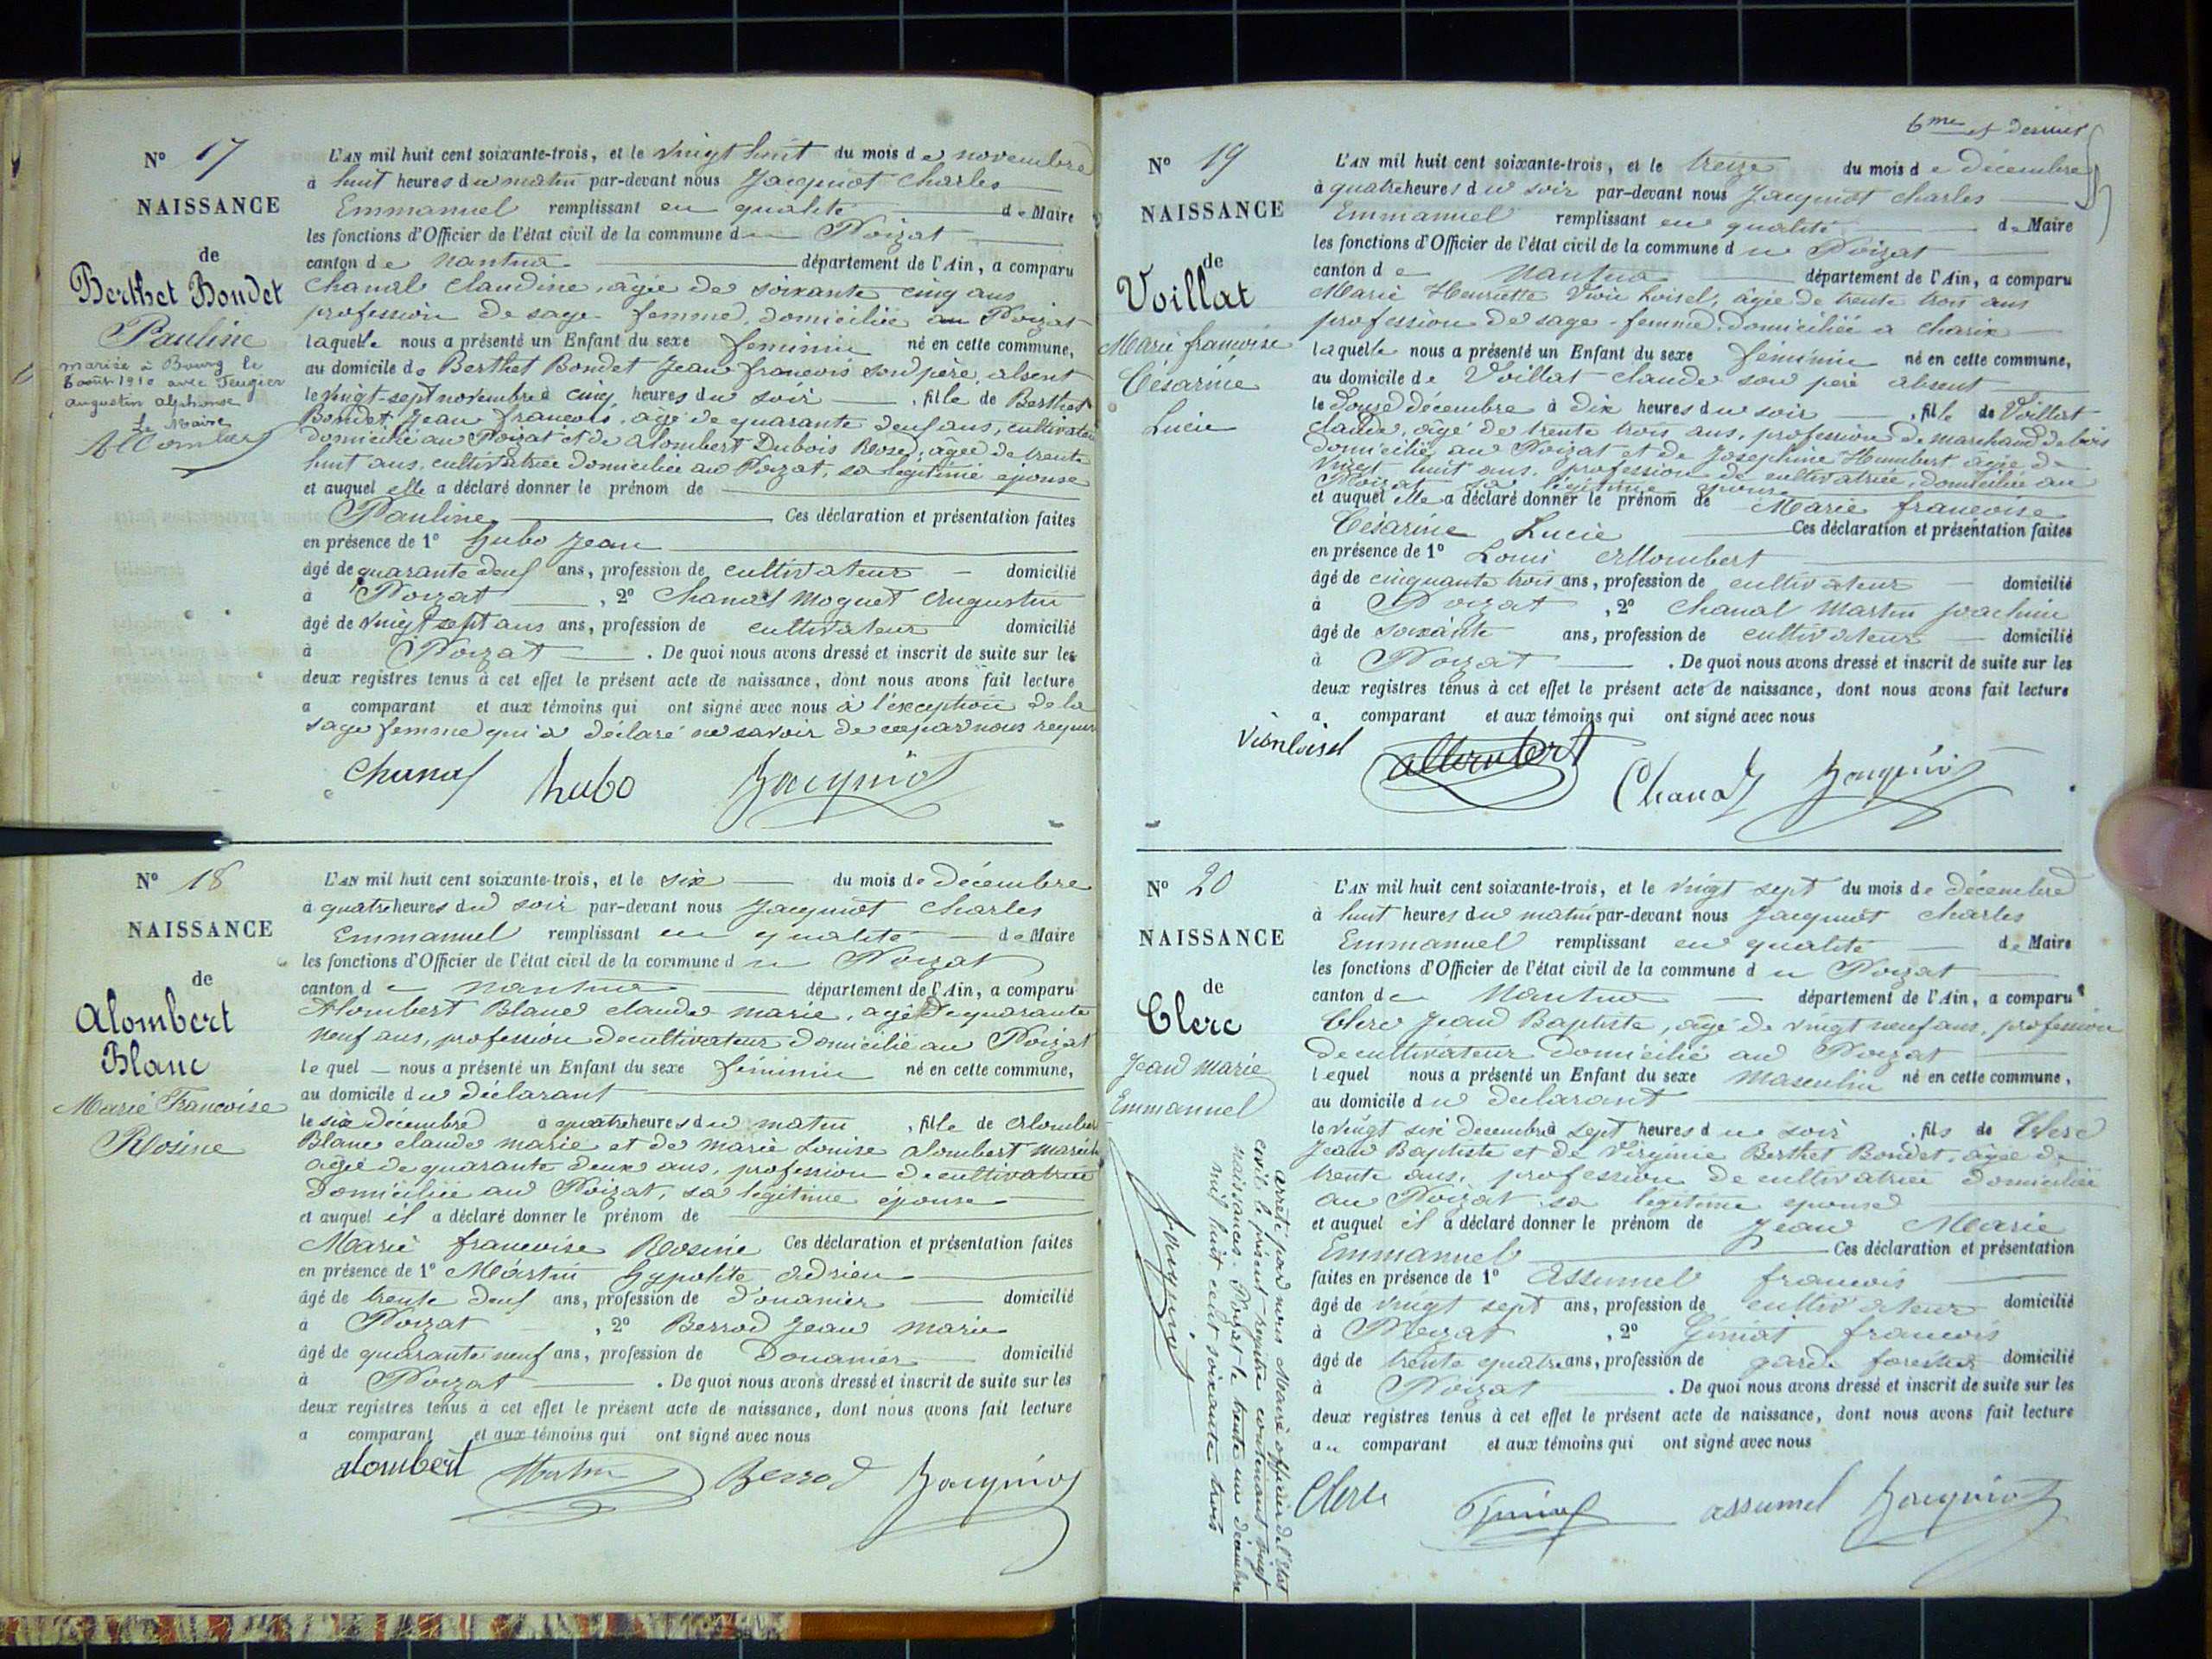 Nº 17
NAISSANCE
de
Berthet Bondet
Pauline
mariée à Bourg le
6 août 1910 avec Feugier
augustin alphonse
Le Maire
L'AN mil huit cent soixante-trois, et le vingt huit du mois de novembre
à huit heures du matin par-devant nous Jacquiot Charles
Emmanuel remplissant en qualité de Maire
les fonctions d'Officier de l'état civil de la commune du Poizat
canton de Nantua département de l'Ain, a comparu
Chanal Claudine, âgée de soixante cinq ans
profession de sage femme, domiciliée au Poizat
laquelle nous a présenté un Enfant du sexe féminin né en cette commune,
au domicile de Berthet Bondet Jean françois son père, absent
le vingt-sept novembre à cinq heures du soir, fille de Berthet
Bondet, Jean françois, âgé de quarante deuf ans, cultivateur
domicilié au Poizat et de Alombert Dubois Rose, âgée de trente
huit ans, cultivatrice domiciliée au Poizat, sa légitimie épouse
et auquel elle a déclaré donner le prénom de
Pauline Ces déclaration et présentation faites
en présence de 1º hubo Jean
âgé de quarante deuf ans, profession de cultivateur domicilié
à Poizat, 2º Chanal Moguet Augustin
âgé de vingt sept ans ans, profession de cultivateur domicilié
à Poizat. De quoi nous avons dressé et inscrit de suite sur les
deux registres tenus à cet effet le présent acte de naissance, dont nous avons fait lecture
a comparant et aux témoins qui ont signé avec nous à l'exception de la
sage femme qui a déclaré ne savoir de ce par nous requis
Chanal hubo Jacquiot
Nº 18
NAISSANCE
de
Alombert
Blanc
Marie Francoise
Rosine
L'AN mil huit cent soixante-trois, et le six du mois de décembre
à quatre heures du soir par-devant nous Jacquiot Charles
Emmanuel remplissant en qualité de Maire
les fonctions d'Officier de l'état civil de la commune du Poizat
canton de Nantua département de l'Ain, a comparu
Alombert Blanc claude marie, agé de quarante
neuf ans, profession de cultivateur domicilié au Poizat
lequel nous a présenté un Enfant du sexe féminin né en cette commune,
au domicile du déclarant
le six décembre à quatre heures du matin, fille de Alombert
Blanc claude marie et de marie Louise Alombert
âgée de quarante deux ans, profession de cultivatrice
domiciliée au Poizat, sa légitime épouse
et auquel il a déclaré donner le prénom de
Marie francoise Rosine Ces déclaration et présentation faites
en présence de 1º Martin hypolite adrien
âgé de trente deuf ans, profession de douanier domicilié
à Poizat, 2º Berrod Jean Marie
âgé de quarante neuf ans, profession de Douanier domicilié
à Poizat. De quoi nous avons dressé et inscrit de suite sur les
deux registres tenus à cet effet le présent acte de naissance, dont nous avons fait lecture
a comparant et aux témoins qui ont signé avec nous
alombert Martin Berrod Jacquiot
6me et dernier
Nº 19
NAISSANCE
de
Voillat
Marie francoise
Césarine
Lucie
L'AN mil huit cent soixante-trois, et le treize du mois de décembre
à quatre heures du soir par-devant nous Jacquiot charles
Emmanuel remplissant en qualité de Maire
les fonctions d'Officier de l'état civil de la commune du Poizat
canton de Nantua département de l'Ain, a comparu
Marie Henriette Vion Loisel, âgée de trente trois ans
profession de sage-femme domiciliée a Charix
laquelle nous a présenté un Enfant du sexe féminin né en cette commune,
au domicile de Voillat claude son père absent
le Douze décembre à dix heures du soir, fille de Voillat
claude, âgé de trente trois ans, profession de marchand de bois
domicilié au Poizat et de Joséphine Humbert âgée de
vingt huit ans, profession de cultivatrice, domiciliée au
Poizat sa légitime épouse
et auquel elle a déclaré donner le prénom de Marie francoise
Césarine Lucie Ces déclaration et présentation faites
en présence de 1º Louis Allombert
âgé de cinquante trois ans, profession de cultivateur domicilié
à Poizat, 2º Chanal Martin joachim
âgé de soixante ans, profession de cultivateur domicilié
à Poizat. De quoi nous avons dressé et inscrit de suite sur les
deux registres tenus à cet effet le présent acte de naissance, dont nous avons fait lecture
a comparant et aux témoins qui ont signé avec nous
Vionloisel allombert Chanal Jacquiot
Nº 20
NAISSANCE
de
Clerc
Jean Marie
Emmanuel
L'AN mil huit cent soixante-trois, et le vingt sept du mois de décembre
à huit heures du matin par-devant nous Jacquiot Charles
Emmanuel remplissant en qualité de Maire
les fonctions d'Officier de l'état civil de la commune du Poizat
canton de Nantua département de l'Ain, a comparu
Clerc Jean Baptiste, âgé de vingt neuf ans, profession
de cultivateur domicilié au Poizat
lequel nous a présenté un Enfant du sexe masculin né en cette commune,
au domicile du déclarant
le vingt six decembre à sept heures du soir, fils de Clerc
Jean Baptiste et de Virginie Berthet Bondet, âgée de
trente ans, profession de cultivatrice domiciliée
au Poizat sa légitime epouse
et auquel il a déclaré donner le prénom de Jean Marie
Emmanuel Ces déclaration et présentation
faites en présence de 1º Assumel francois
âgé de vingt sept ans, profession de cultivateur domicilié
à Poizat, 2º Géniat francois
âgé de trente quatre ans, profession de garde forestier domicilié
à Poizat. De quoi nous avons dressé et inscrit de suite sur les
deux registres tenus à cet effet le présent acte de naissance, dont nous avons fait lecture
au comparant et aux témoins qui ont signé avec nous
Clerc assumel Jacquiot
arrêté par nous Maire officier de l'Etat
civil le présent registre contenant vingt
naissances. Poizat le trente un décembre
mil huit cent soixante trois
Jacquiot